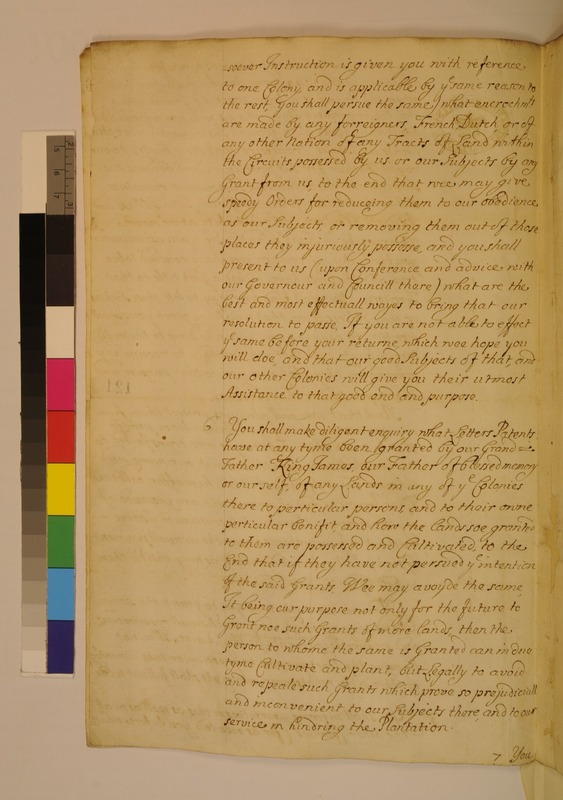 =soever Instruction is given you with reference
to one Colony, and is applicable by yͤ same reason to
the rest, You shall persue the same) what encrochmts
are made by any forreigners, French Dutch or of
any other Nation of any Tracts of Land within
the Circuits possessed by us or our Subjects by any
Grant from us to the end that wee may give
speedy Orders for reduceing them to our obedience
as our Subjects, or removing them out of those
places they injuriously possesse, and you shall
present to us (upon Conference and advice with
our Governour and Councill there) what are the
best and most effectuall wayes to bring that our
resolution to passe, If you are not able to effect
yͤ same before your returne, which wee hope you
will doe, and that our good Subjects of that, and
our other Colonies will give you their utmost
Assistance to that good end and purpose.
6 You shall make diligent enquiry what Letters Patents
have at any tyme been granted by our Grand=
Father King James, our Father of blessed memory
or our self, of any Lands in any of yͤ Colonies
there to perticular persons, and to their owne
perticular benifit and how the lands soe granted
to them are possessed and Cultivated, to the
End that if they have not persued yͤ intention
of the said Grants Wee may avoyde the same,
It being our purpose not only for the future to
Grant noe such Grants of more lands, then the
person to whome the same is Granted can in due
tyme Cultivate and plant, but Legally to avoid
and repeale such Grants which prove so prejudiciall
and inconvenient to our Subjects there, and to our
service in hindring the Plantation.
7 You